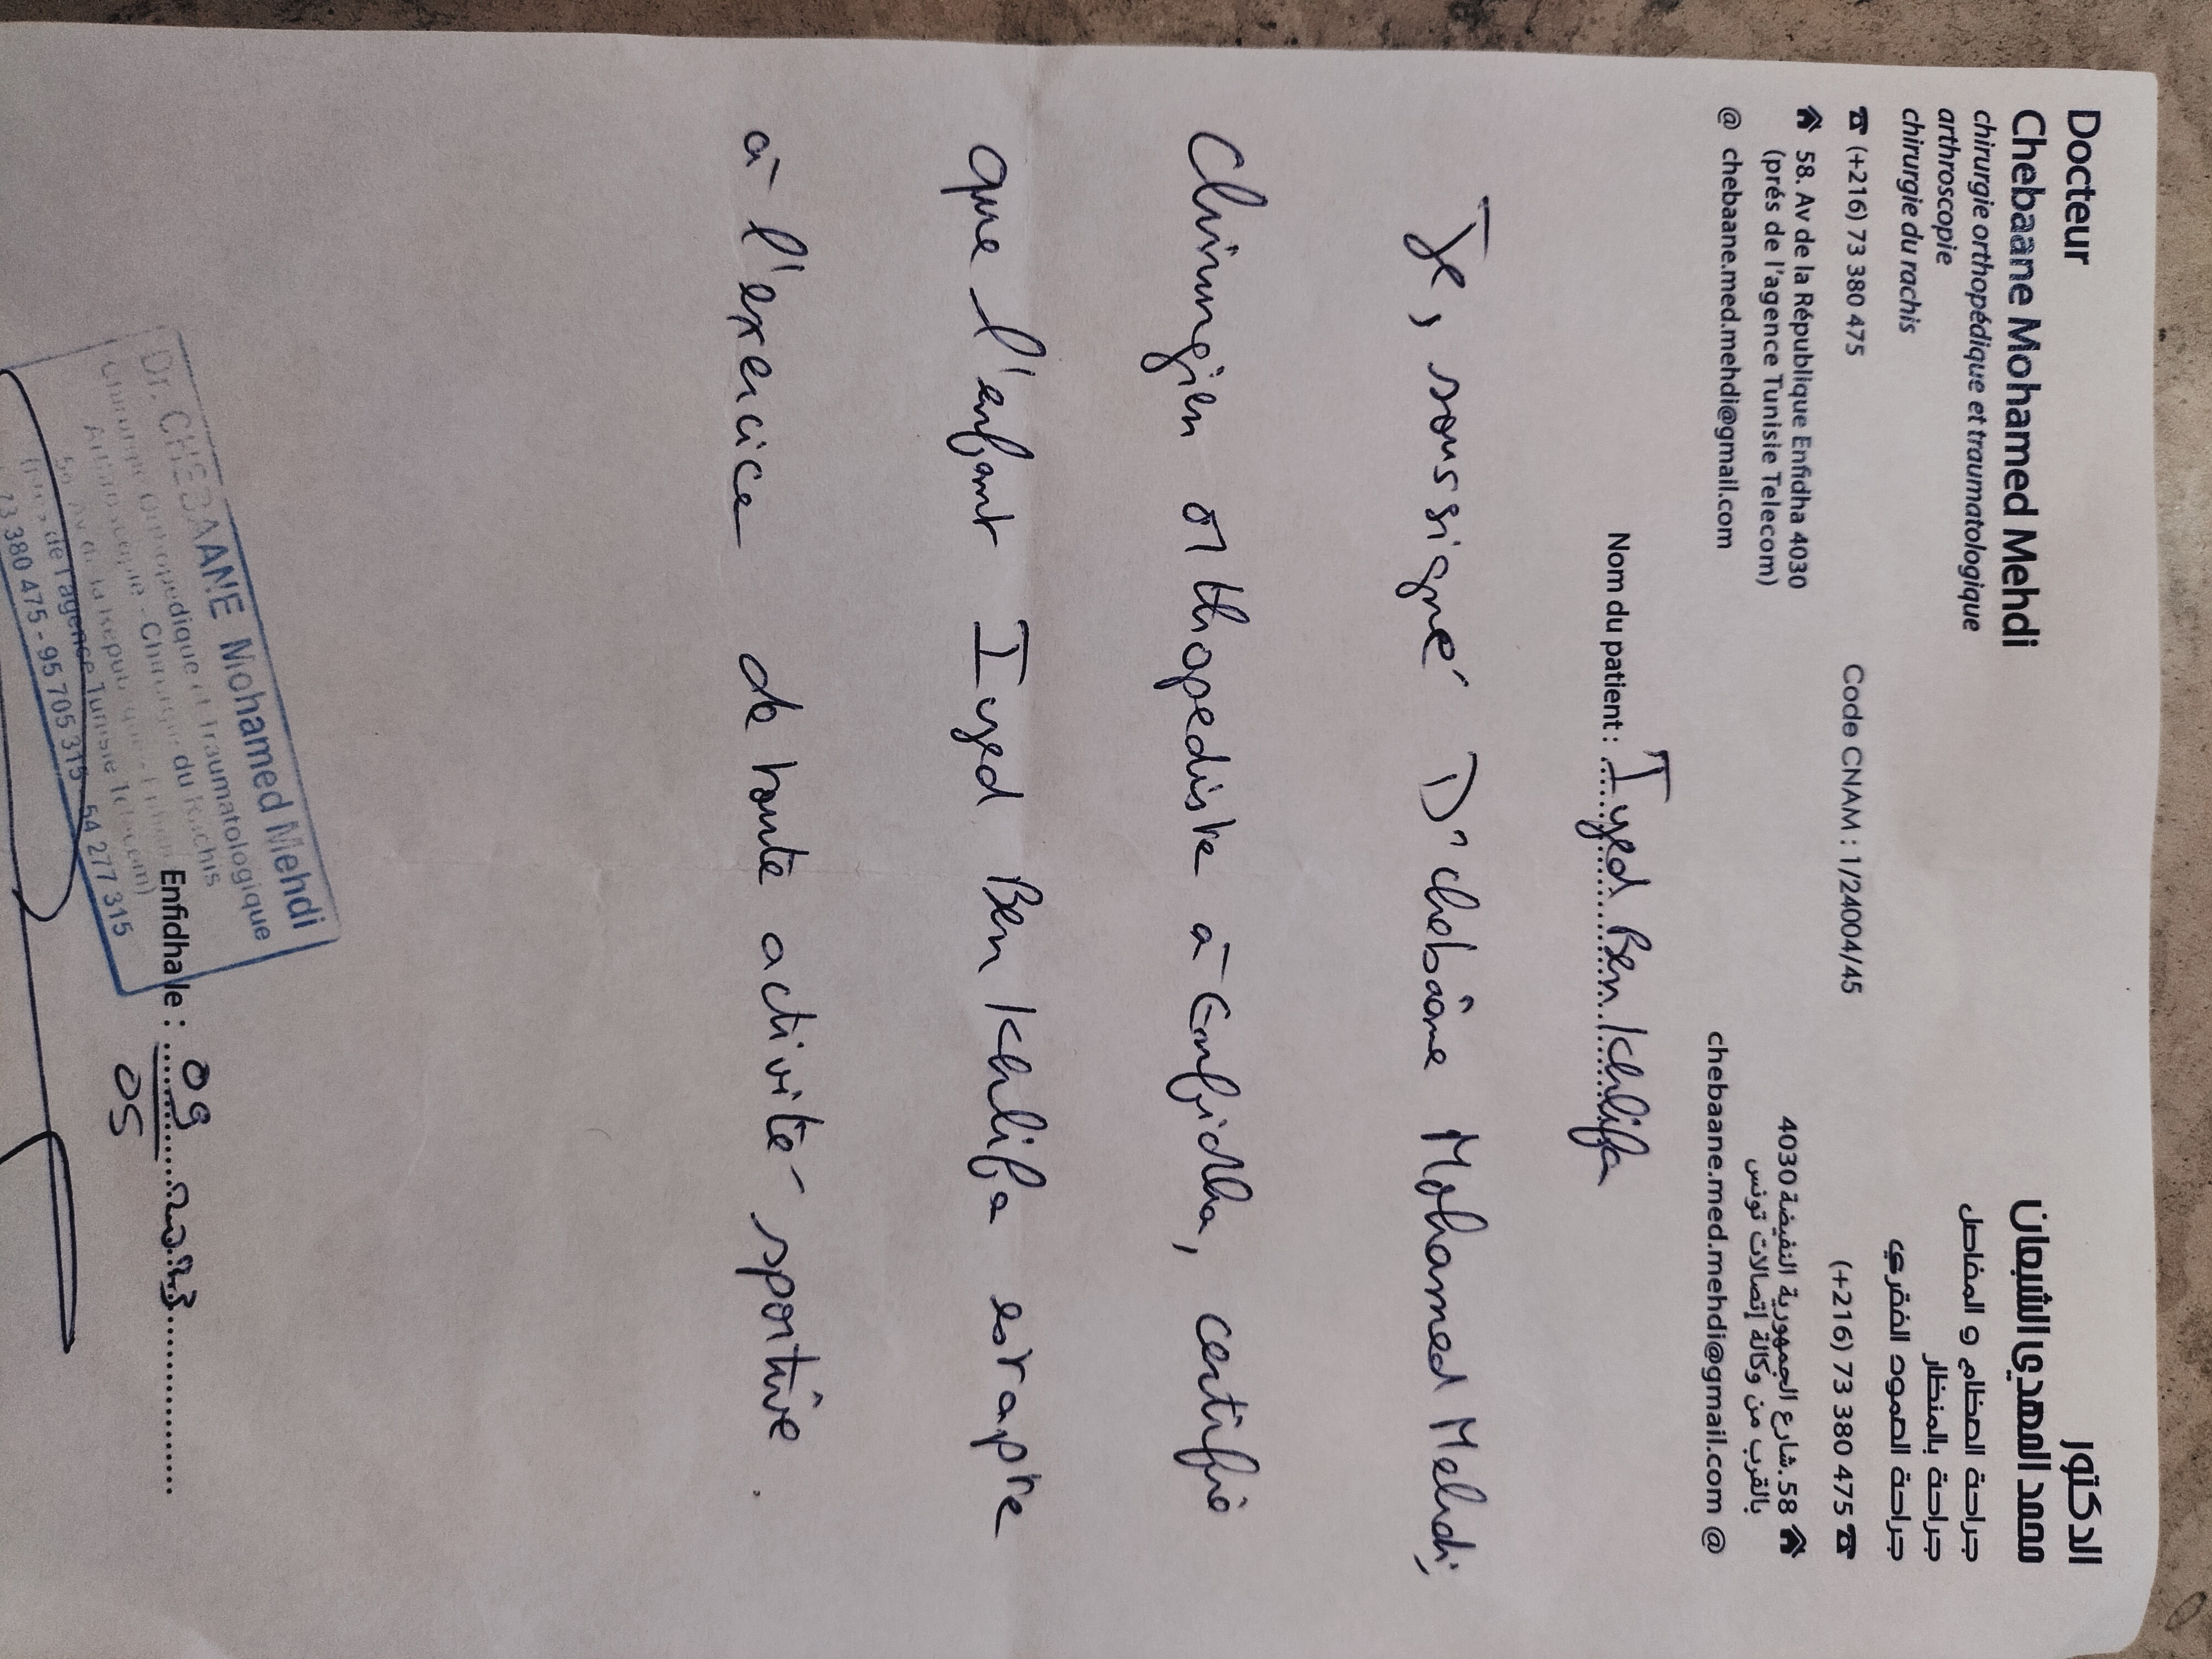 Docteur
Chebaane Mohamed Mehdi
chirurgie orthopédique et traumatologique
arthroscopie
chirurgie du rachis
☎ (+216) 73 380 475
Code CNAM : 1/24004/45
58. Av de la République Enfidha 4030
(prés de l'agence Tunisie Telecom)
@ chebaane.med.mehdi@gmail.com
الدكتور
محمد المهدي الشبعان
جراحة العظام و المفاصل
جراحة بالمنظار
جراحة العمود الفقري
(+216) 73 380 475 ☎
58.شارع الجمهورية النفيضة 4030
بالقرب من وكالة إتصالات تونس
chebaane.med.mehdi@gmail.com @
Nom du patient : Iyed Ben Khlifa
Je, soussigné Dr chebâane Mohamed Mehdi,
Chirurgien orthopediste à Enfidha, certifie
que l'enfant Iyed Ben Khlifa est apte
à l'exercice de toute activité sportive.
Dr. CHEBAANE Mohamed Mehdi
Chirurgie Orthopédique et Traumatologique
Arthroscopie - Chirurgie du Rachis
58, Av de la République - Enfidha
(près de l'agence Tunisie Telecom)
73 380 475 - 95 705 315 - 54 277 315
Enfidha le : 09
05